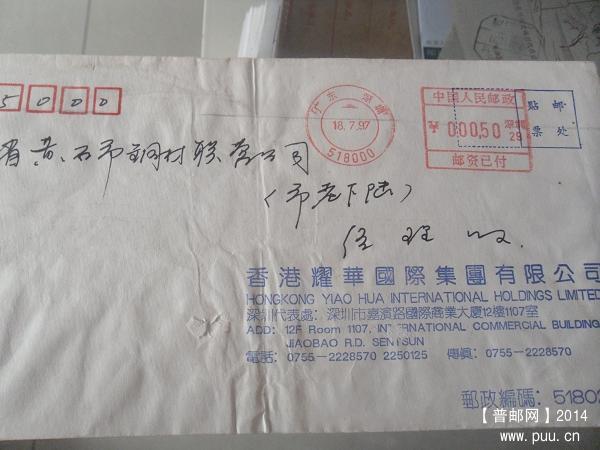 5000
广东 深圳
18.7.97
518000
中国人民邮政
¥ 000.50 深圳
29
邮资已付
贴邮
票处
省黄石市钢材联营公司
(市老下陆)
收
香港耀華國際集團有限公司
HONGKONG YIAO HUA INTERNATIONAL HOLDINGS LIMITED
深圳代表處: 深圳市嘉濱路國際商業大廈12樓1107室
ADD: 12F Room 1107, INTERNATIONAL COMMERCIAL BUILDING
JIAOBAO R.D. SENTSUN
電話: 0755-2228570 2250125 傳真: 0755-2228570
郵政編碼: 51802
【普邮网】2014
www.puu.cn